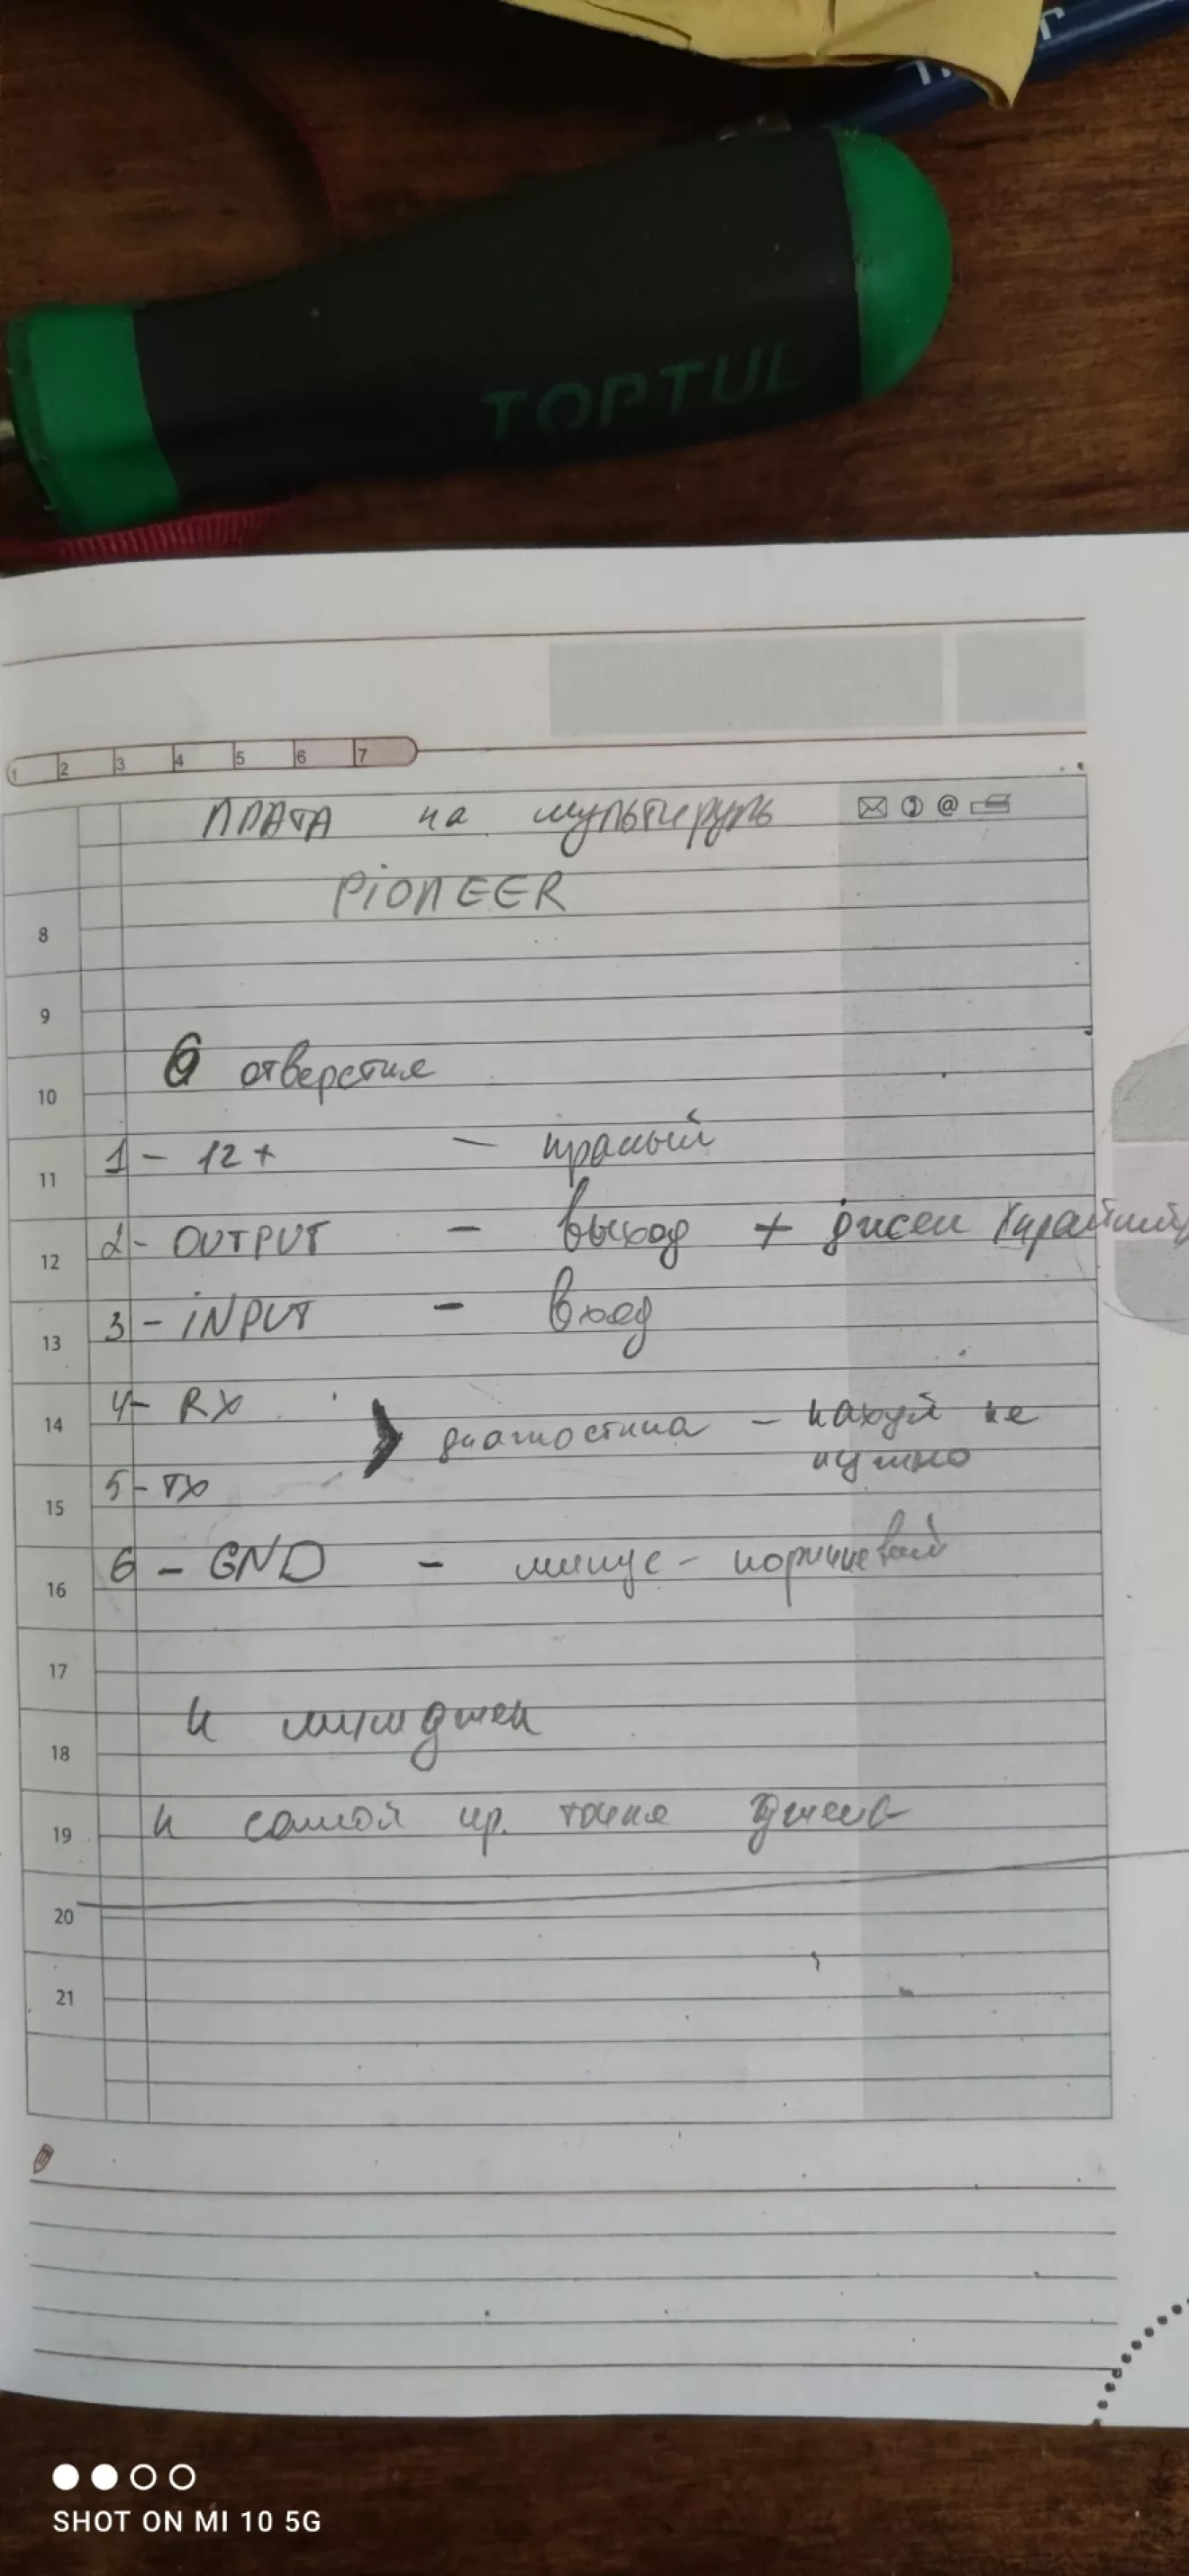 TOPTUL
1 2 3 4 5 6 7
ПЛАТА на мультируль
PiONEER
8
9
6 отверстия
10
1 - 12 + -
11
2 - OUTPUT - выход + джек
12
3 - iNPUT - вход
13
4 - RX
14
диагностика - нахуй не
нужно
5 - TX
15
6 - GND - минус - коричневый
16
17
к миниджек
18
к самой кр. точке джека
19
20
21
SHOT ON MI 10 5G